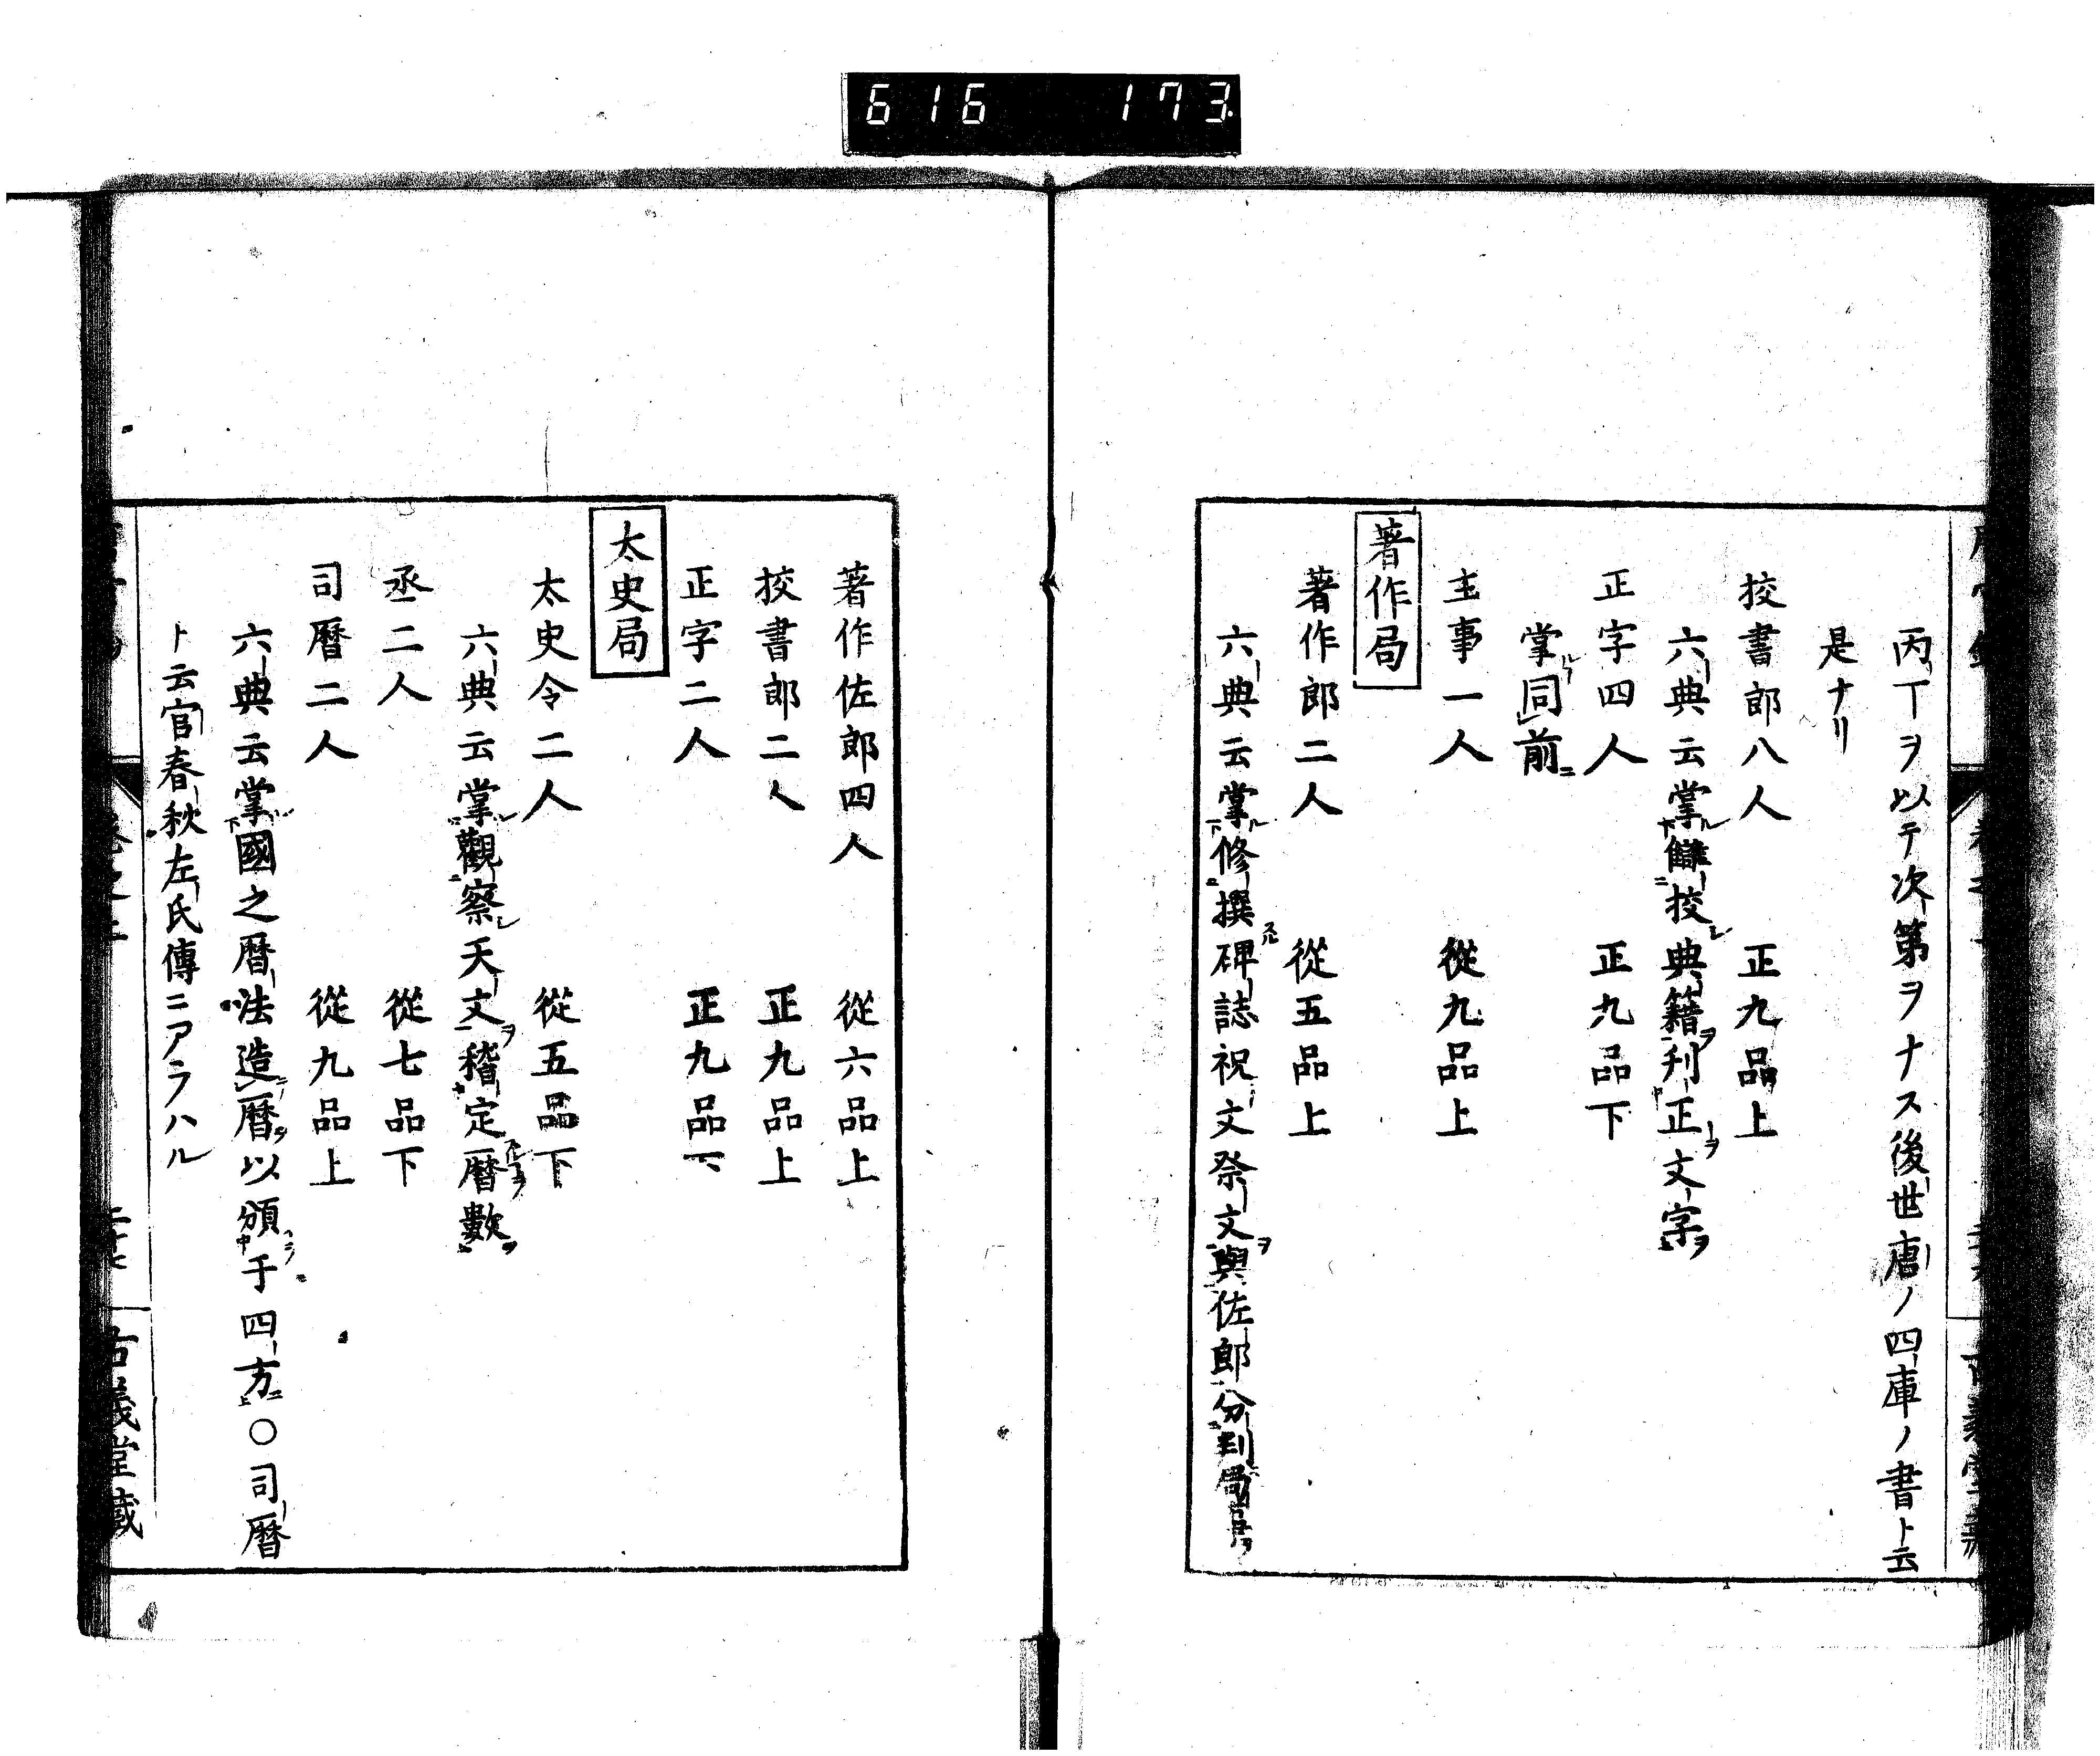 616 173
丙丁ヲ以テ次第ヲナス後世唐ノ四庫ノ書ト云
是ナリ
挍書郎八人 正九品上
六典云掌讎挍典籍刋正文字
正字四人 正九品下
掌同前
主事一人 從九品上
著作局
著作郎二人 從五品上
六典云掌修撰碑誌祝文祭文與佐郎分判局事
著作佐郎四人 從六品上
挍書郎二人 正九品上
正字二人 正九品下
太史局
太史令二人 從五品下
六典云掌觀察天文稽定曆數
丞二人 從七品下
司曆二人 從九品上
六典云掌國之曆法造曆以頒于四方〇司曆
ト云官春秋左氏傳ニアラハル
古義堂藏